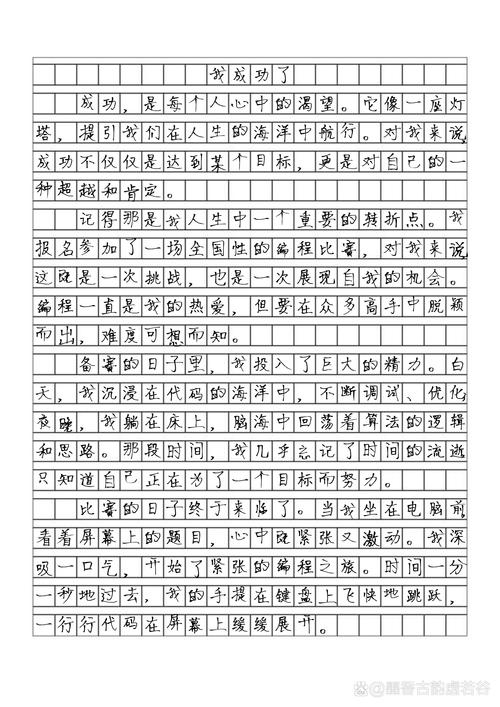 我成功了
成功，是每个人心中的渴望。它像一座灯
塔，提引我们在人生的海洋中航行。对我来说,
成功不仅仅是达到某个目标，更是对自己的一
种超越和肯定。
记得那是我人生中一个重要的转折点。我
报名参加了一场全国性的编程比赛，对我来说
这既是一次挑战，也是一次展现自我的机会。
编程一直是我的热爱，但要在众多高手中脱颖
而出，难度可想而知。
备赛的日子里，我投入了巨大的精力。白
天，我沉浸在代码的海洋中，不断调试、优化
夜晚，我躺在床上，脑海中回荡着算法的逻辑
和思路。那段时间，我几乎忘记了时间的流逝
只知道自己正在为了一个目标而努力。
比赛的日子终于来临了。当我坐在电脑前
看着屏幕上的题目，心中既紧张又激动。我深
吸一口气，开始了紧张的编程之旅。时间一分
一秒地过去，我的手提在键盘上飞快地跳跃，
一行行代码在屏幕上缓缓展开。